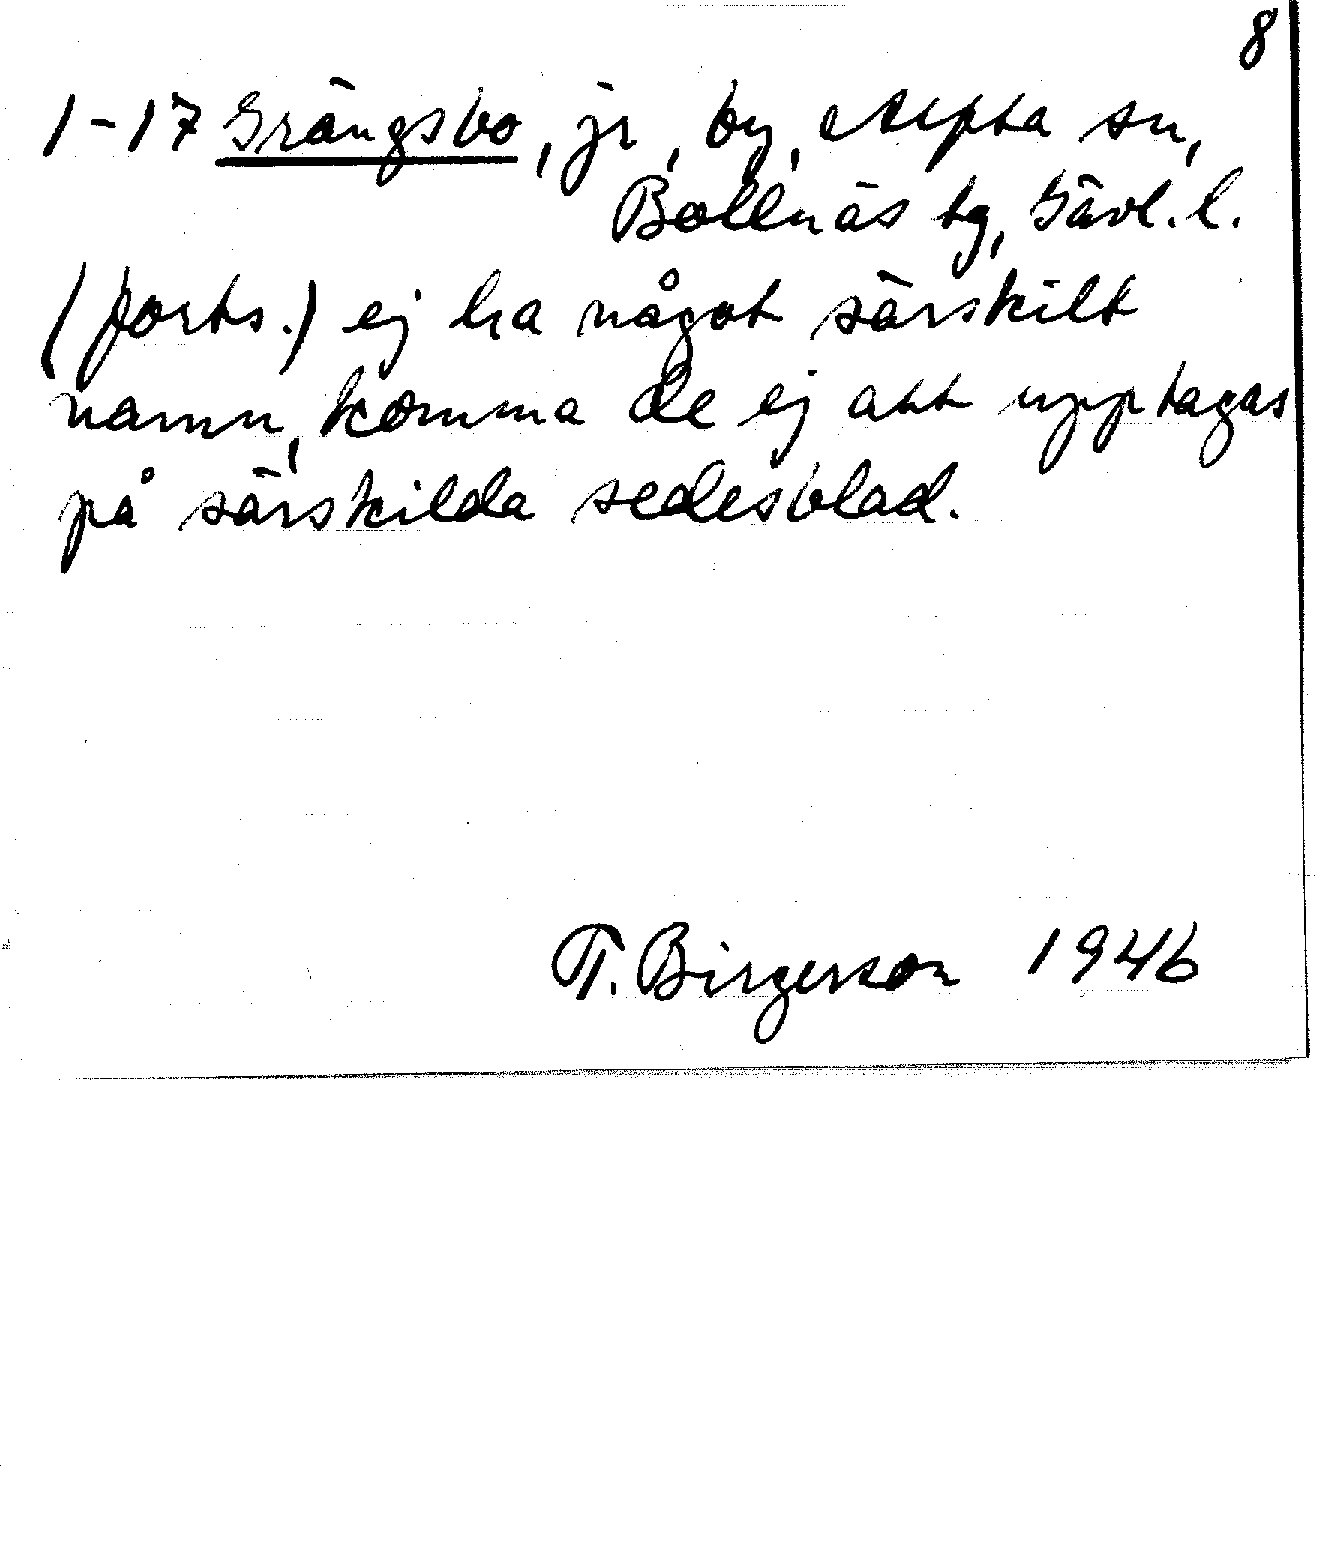 8
1-17 Grängsbo, jr, by, Alfta sn,
Bollnäs tg, Gävl. l.
(forts.) ej ha något särskilt
namn, komma de ej att upptagas
på särskilda sedesblad.
T. Birgerson 1946